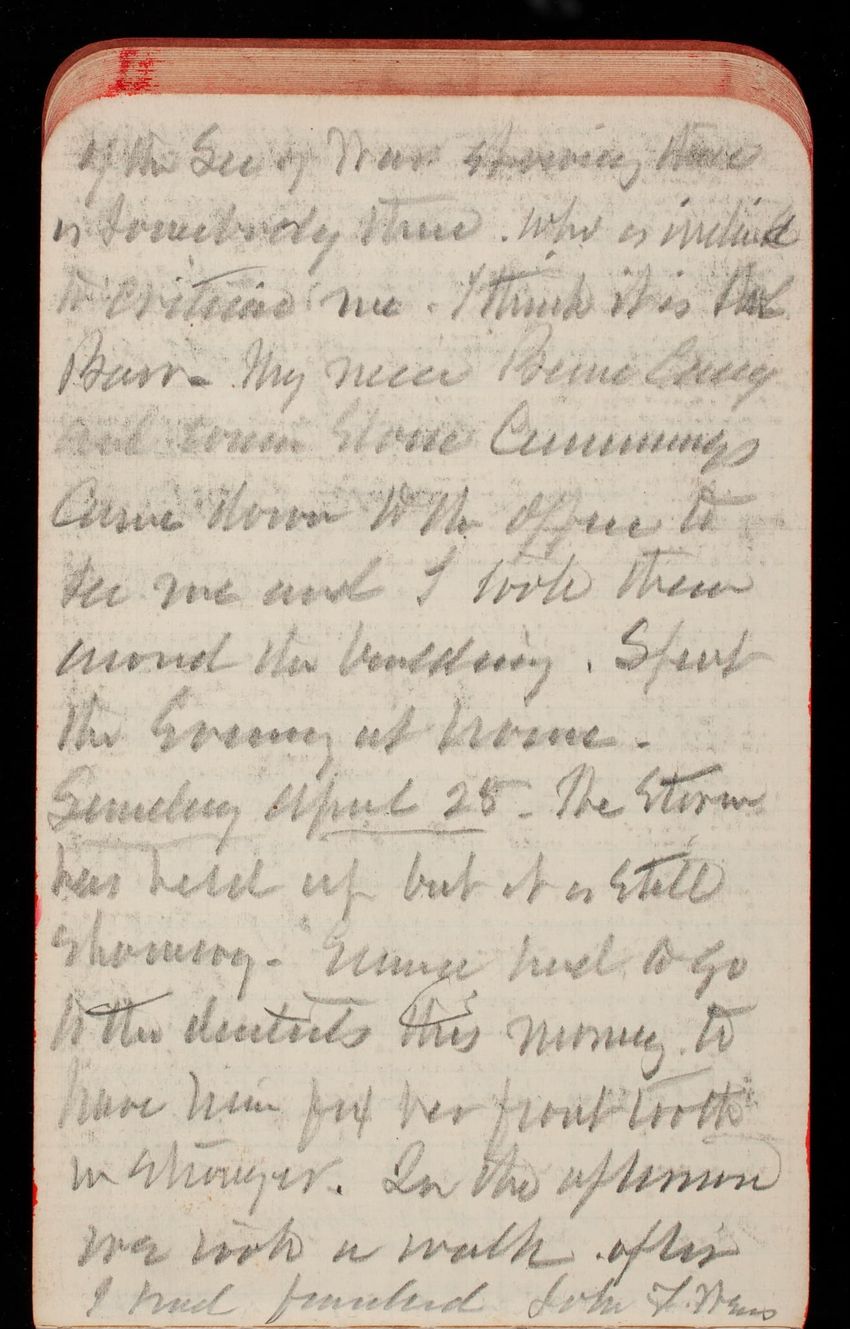 of the Sec of War showing there
is somebody there. who is inclined
to criticise me. I think it is Col
Barr. My niece Casey
and cousin Cummings
Came down to the office to
see me and I took them
around the building. Spent
the Evening at home.
Sunday April 28. The Storm
has held up but it is still
showery. had to go
to the dentists this morning to
have him fix her front tooth
in stronger. In the afternoon
we took a walk after
I had finished John T.